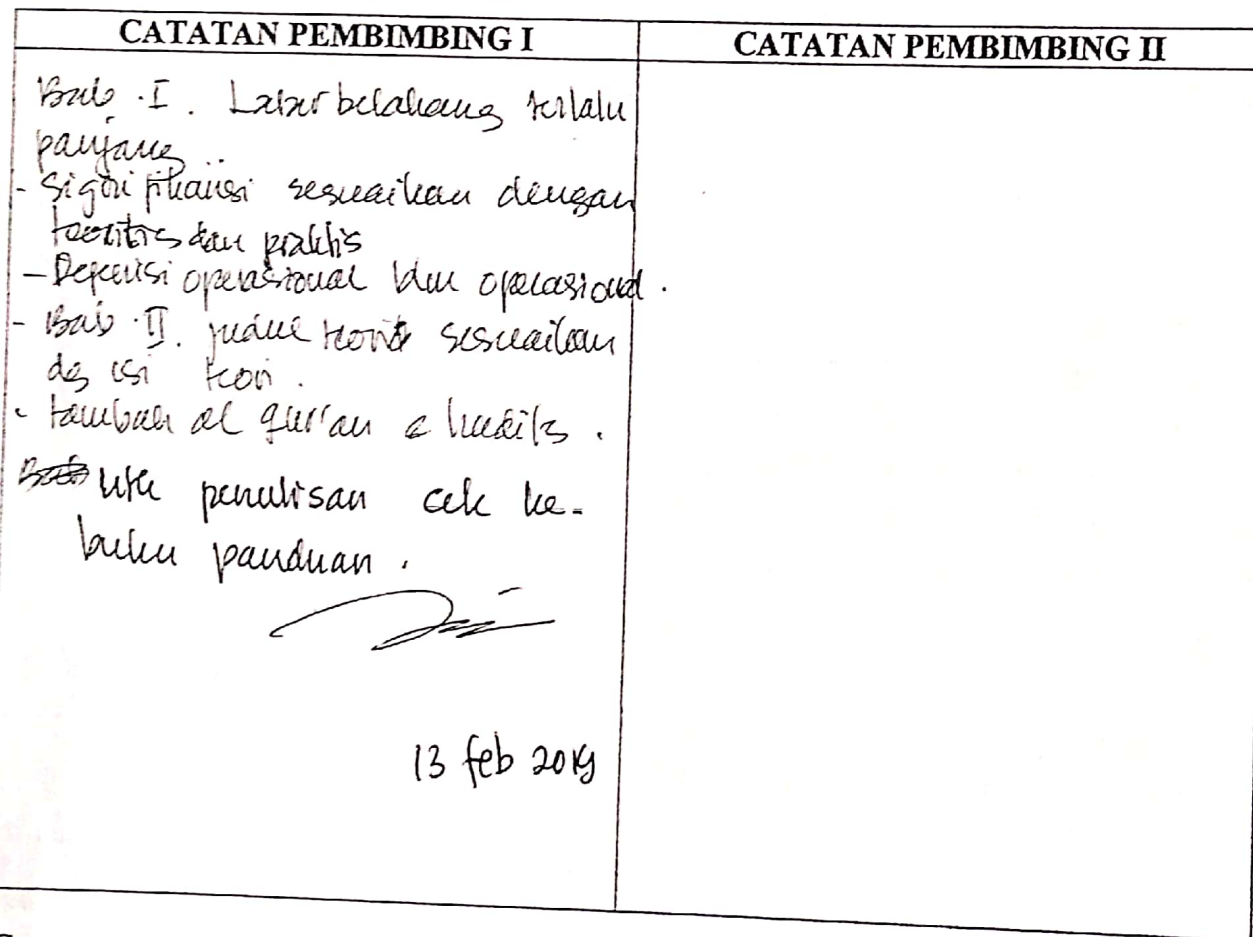 CATATAN PEMBIMBING I
CATATAN PEMBIMBING II
Bab . I . Latar belakang terlalu
panjang
- Signifikansi sesuaikan dengan
teoritis dan praktis
- Depenisi operasional blm operasional .
- Bab . II . judul teori sesuaikan
dg isi teori .
- tambah al qur'an & hadits .
utk penulisan cek ke-
buku panduan .
13 feb 2019